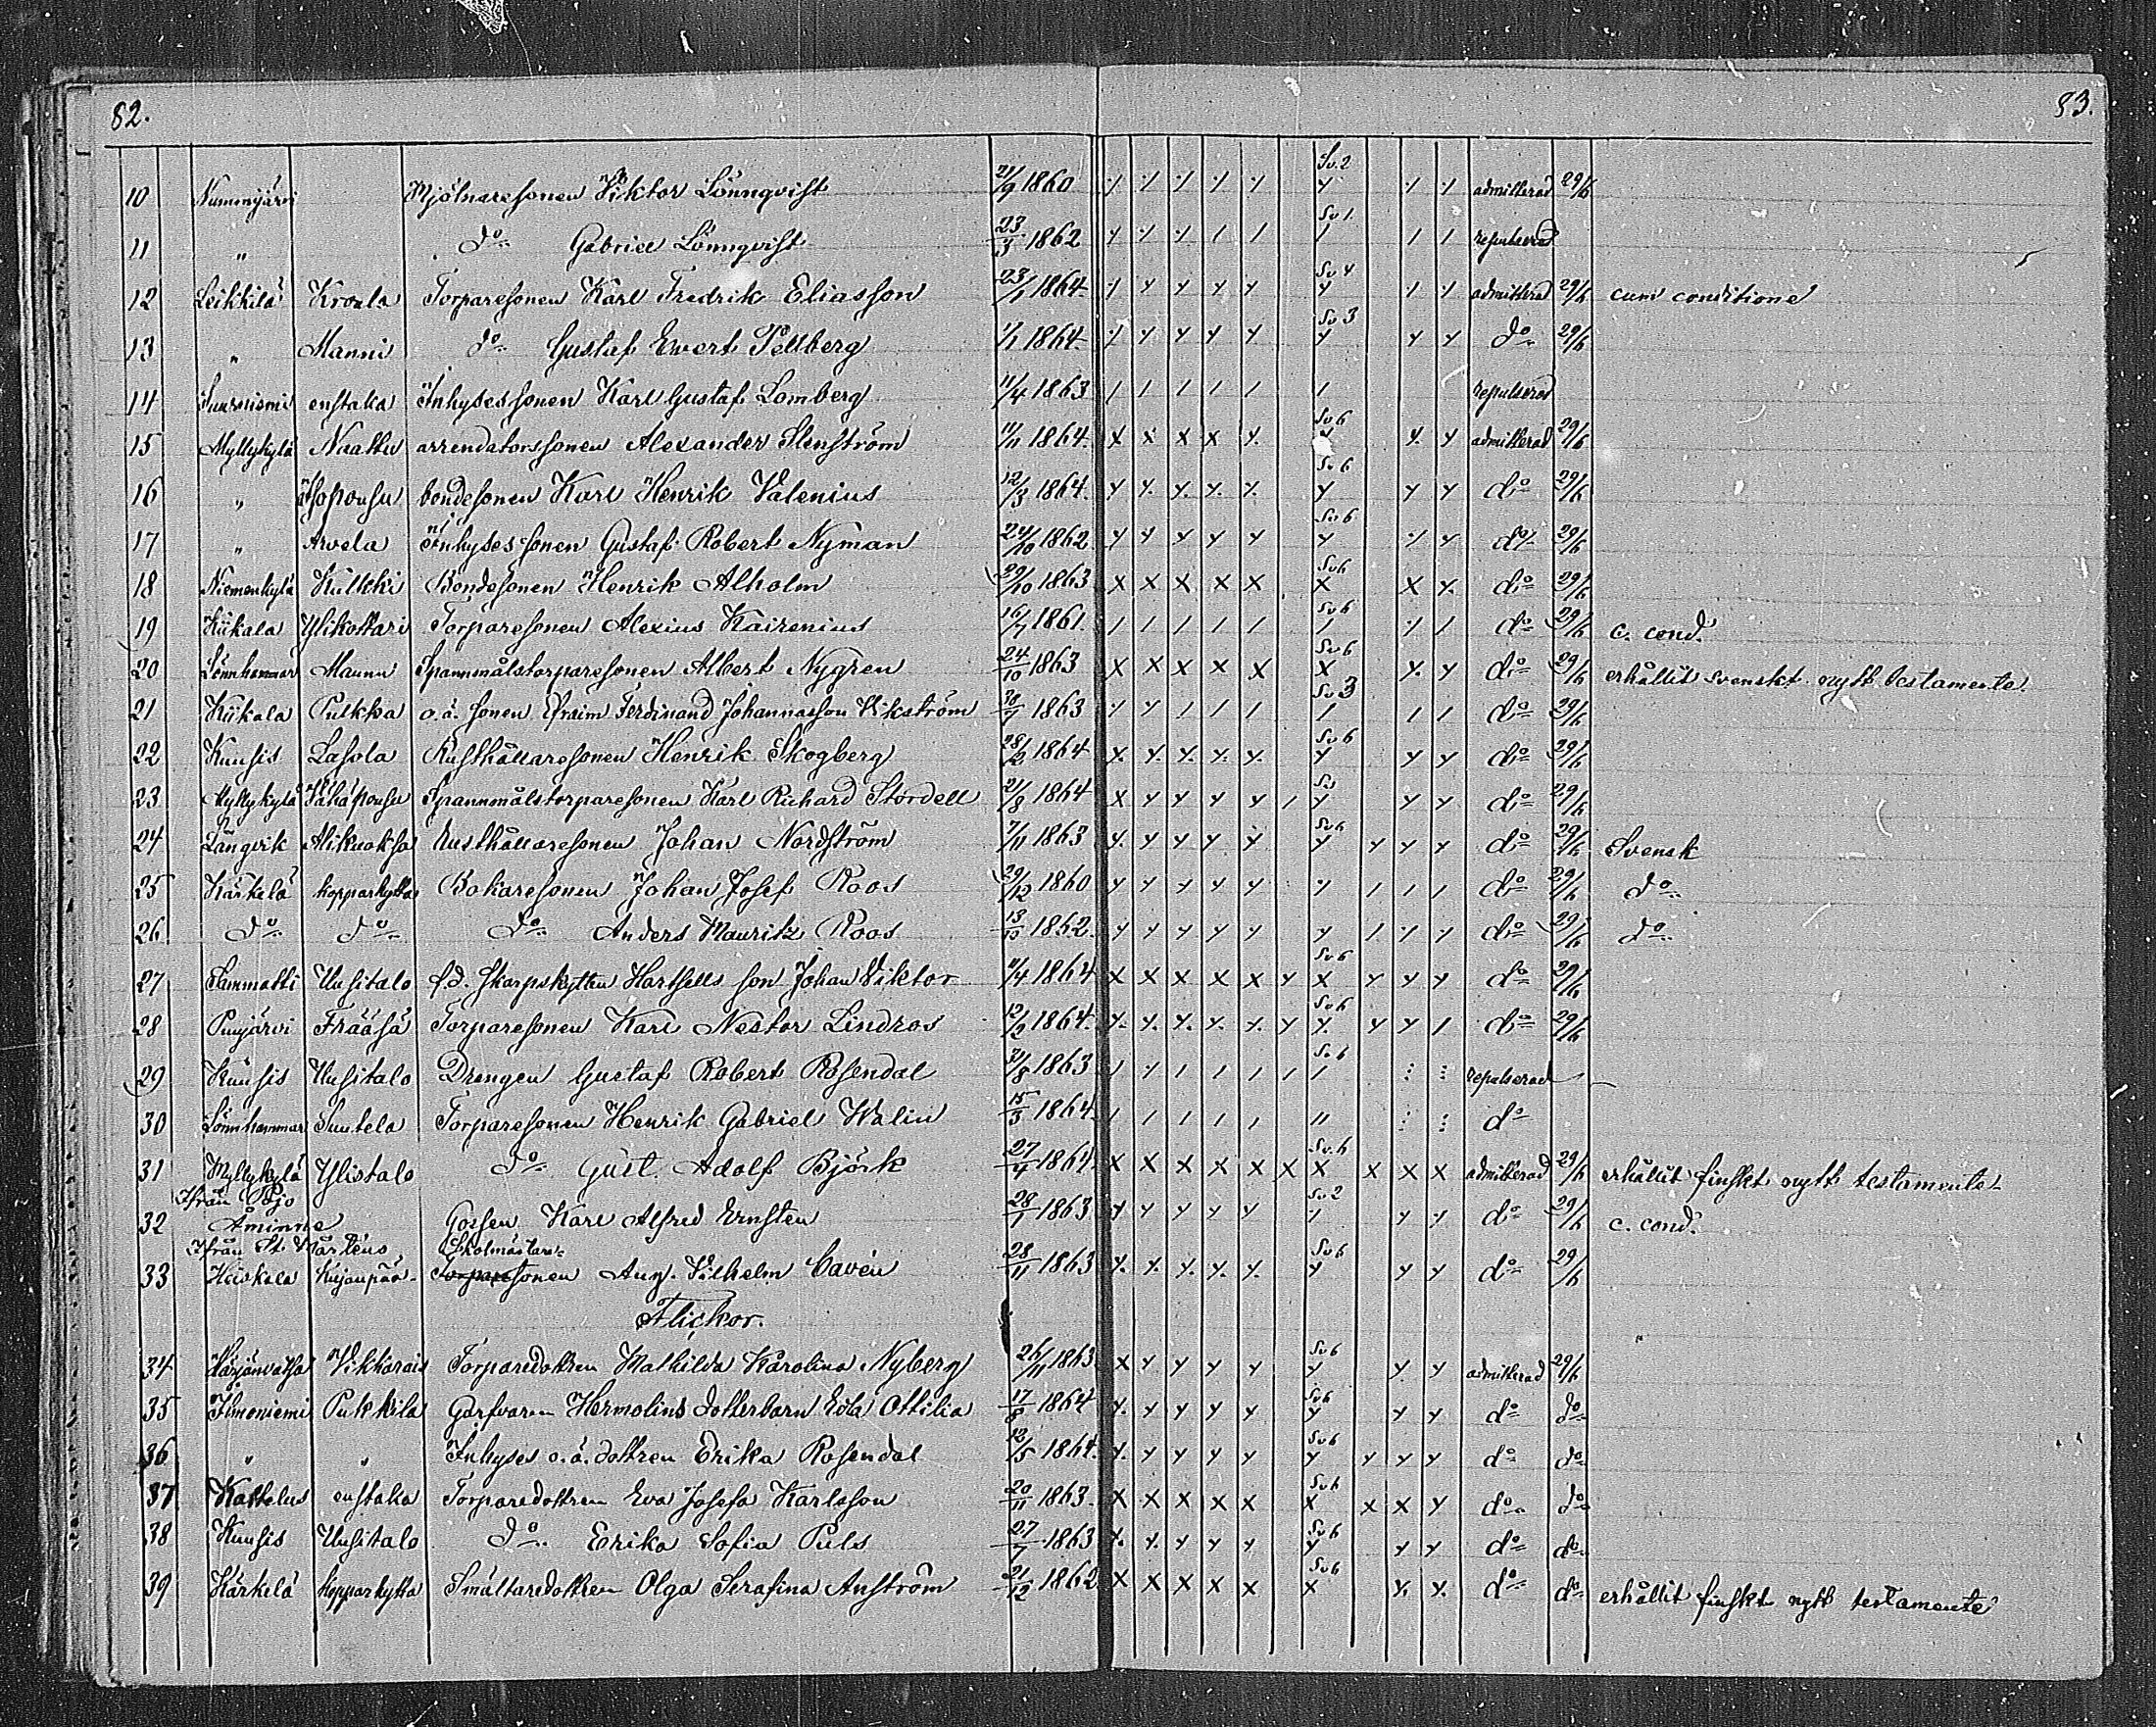 82. 83.
10 Nummijärvi Mjölnaresonen Viktor Lönnqvist 21/9 1860 Sv. 2 admitterad 29/6
11 " do Gabriel Lönnqvist 23/3 1862 Sv 1 repulserad
12 Leikkilä Kroula Torparesonen Karl Fredrik Eliasson 23/1 1864 Sv 4 admitterad 29/6 cum conditione
13 " Manni do Gustaf Evert Fellberg 1/1 1864 Sv 3 do 29/6
14 Suurniemi enstaka Inhysessonen Karl Gustaf Lomberg 11/4 1863 repulserad
15 Myllykylä Naattu arrendatorssonen Alexander Stenström 11/11 1864 Sv 6 admitterad 29/6
16 " bondesonen Karl Henrik Valenius 12/3 1864 Sv 6 do 29/6
17 " Arvela Inhysessonen Gustaf Robert Nyman 24/10 1862 Sv 6 do 29/6
18 Niemenkylä Kulkki Bondesonen Henrik Alholm 29/10 1863 Sv 6 do 29/6
19 Kiikala Ylikottari Torparesonen Alexius Kairenius 16/7 1861 Sv 6 do 29/6 c. cond.
20 Lönnhammar Maunu Spannmålstorparesonen Albert Nygren 24/10 1863 Sv 6 do 29/6 erhållit svenskt nytt testamente.
21 Kiikala Pukka o.ä. sonen Efraim Ferdinand Johannasson Vikström 30/7 1863 Sv 3 do 29/6
22 Kuusis Lasola Rusthållaresonen Henrik Skogberg 28/2 1864 Sv 6 do 29/6
23 Myllykylä Vähäpousu Spannmålstorparesonen Karl Richard Stordell 21/8 1864 Sv do 29/6
24 Långvik Alikuoksa Rusthållaresonen Johan Nordström 7/11 1863 Sv 6 do 29/6 Svensk
25 Kärkelä kopparhytta Bokaresonen Johan Josef Roos 29/12 1860 do 29/6 do
26 do do do Anders Mauritz Roos 13/10 1862 do 29/6 do
27 Sammatti Uusitalo f.d. skarpskytten Hartsells son Johan Viktor 11/4 1864 Sv 6 do 29/6
28 Puujärvi Frääsä Torparesonen Karl Nestor Lindros 12/2 1864 Sv 6 do 29/6
29 Kuusis Uusitalo Drengen Gustaf Robert Rosendal 31/8 1863 Sv 6 repulserad
30 Lönnhammar Suutela Torparesonen Henrik Gabriel Walin 15/3 1864 do
31 Myllykylä Ylistalo do Gust. Adolf Björk 27/4 1864 Sv. 6 admitterad 29/6 erhållit finskt nytt testamente
Ifrån Pojo
32 Åminne Gossen Karl Alfred Ernsten 28/7 1863 Sv 2 do 29/6 c. cond.
Ifrån St. Mårtens Skolmästare-
33 Heiskala Kujanpää Torparesonen Aug. Vilhelm Cavén 28/11 1863 Sv 6 do 29/6
Flickor.
34 Harjänvatsa Vikkarais Torparedottren Mathilda Karolina Nyberg 26/11 1863 Sv 6 admitterad 29/6
35 Himoniemi Pukkila Garfvaren Hermolins dotterbarn Eda Ottilia 17/8 1864 Sv 6 do do
36 " " Inhyses o.ä. dottren Erika Rosendal 12/5 1864 Sv 6 do do
37 Kattelus enstaka Torparedottren Eva Josefa Karlsson 20/11 1863 Sv 6 do do
38 Kuusis Uusitalo do Erika Sofia Puls 27/7 1863 Sv 6 do do
39 Kärkelä kopparhytta Smältaredottren Olga Serafina Anström 21/12 1862 Sv 6 do do erhållit finskt nytt testamente